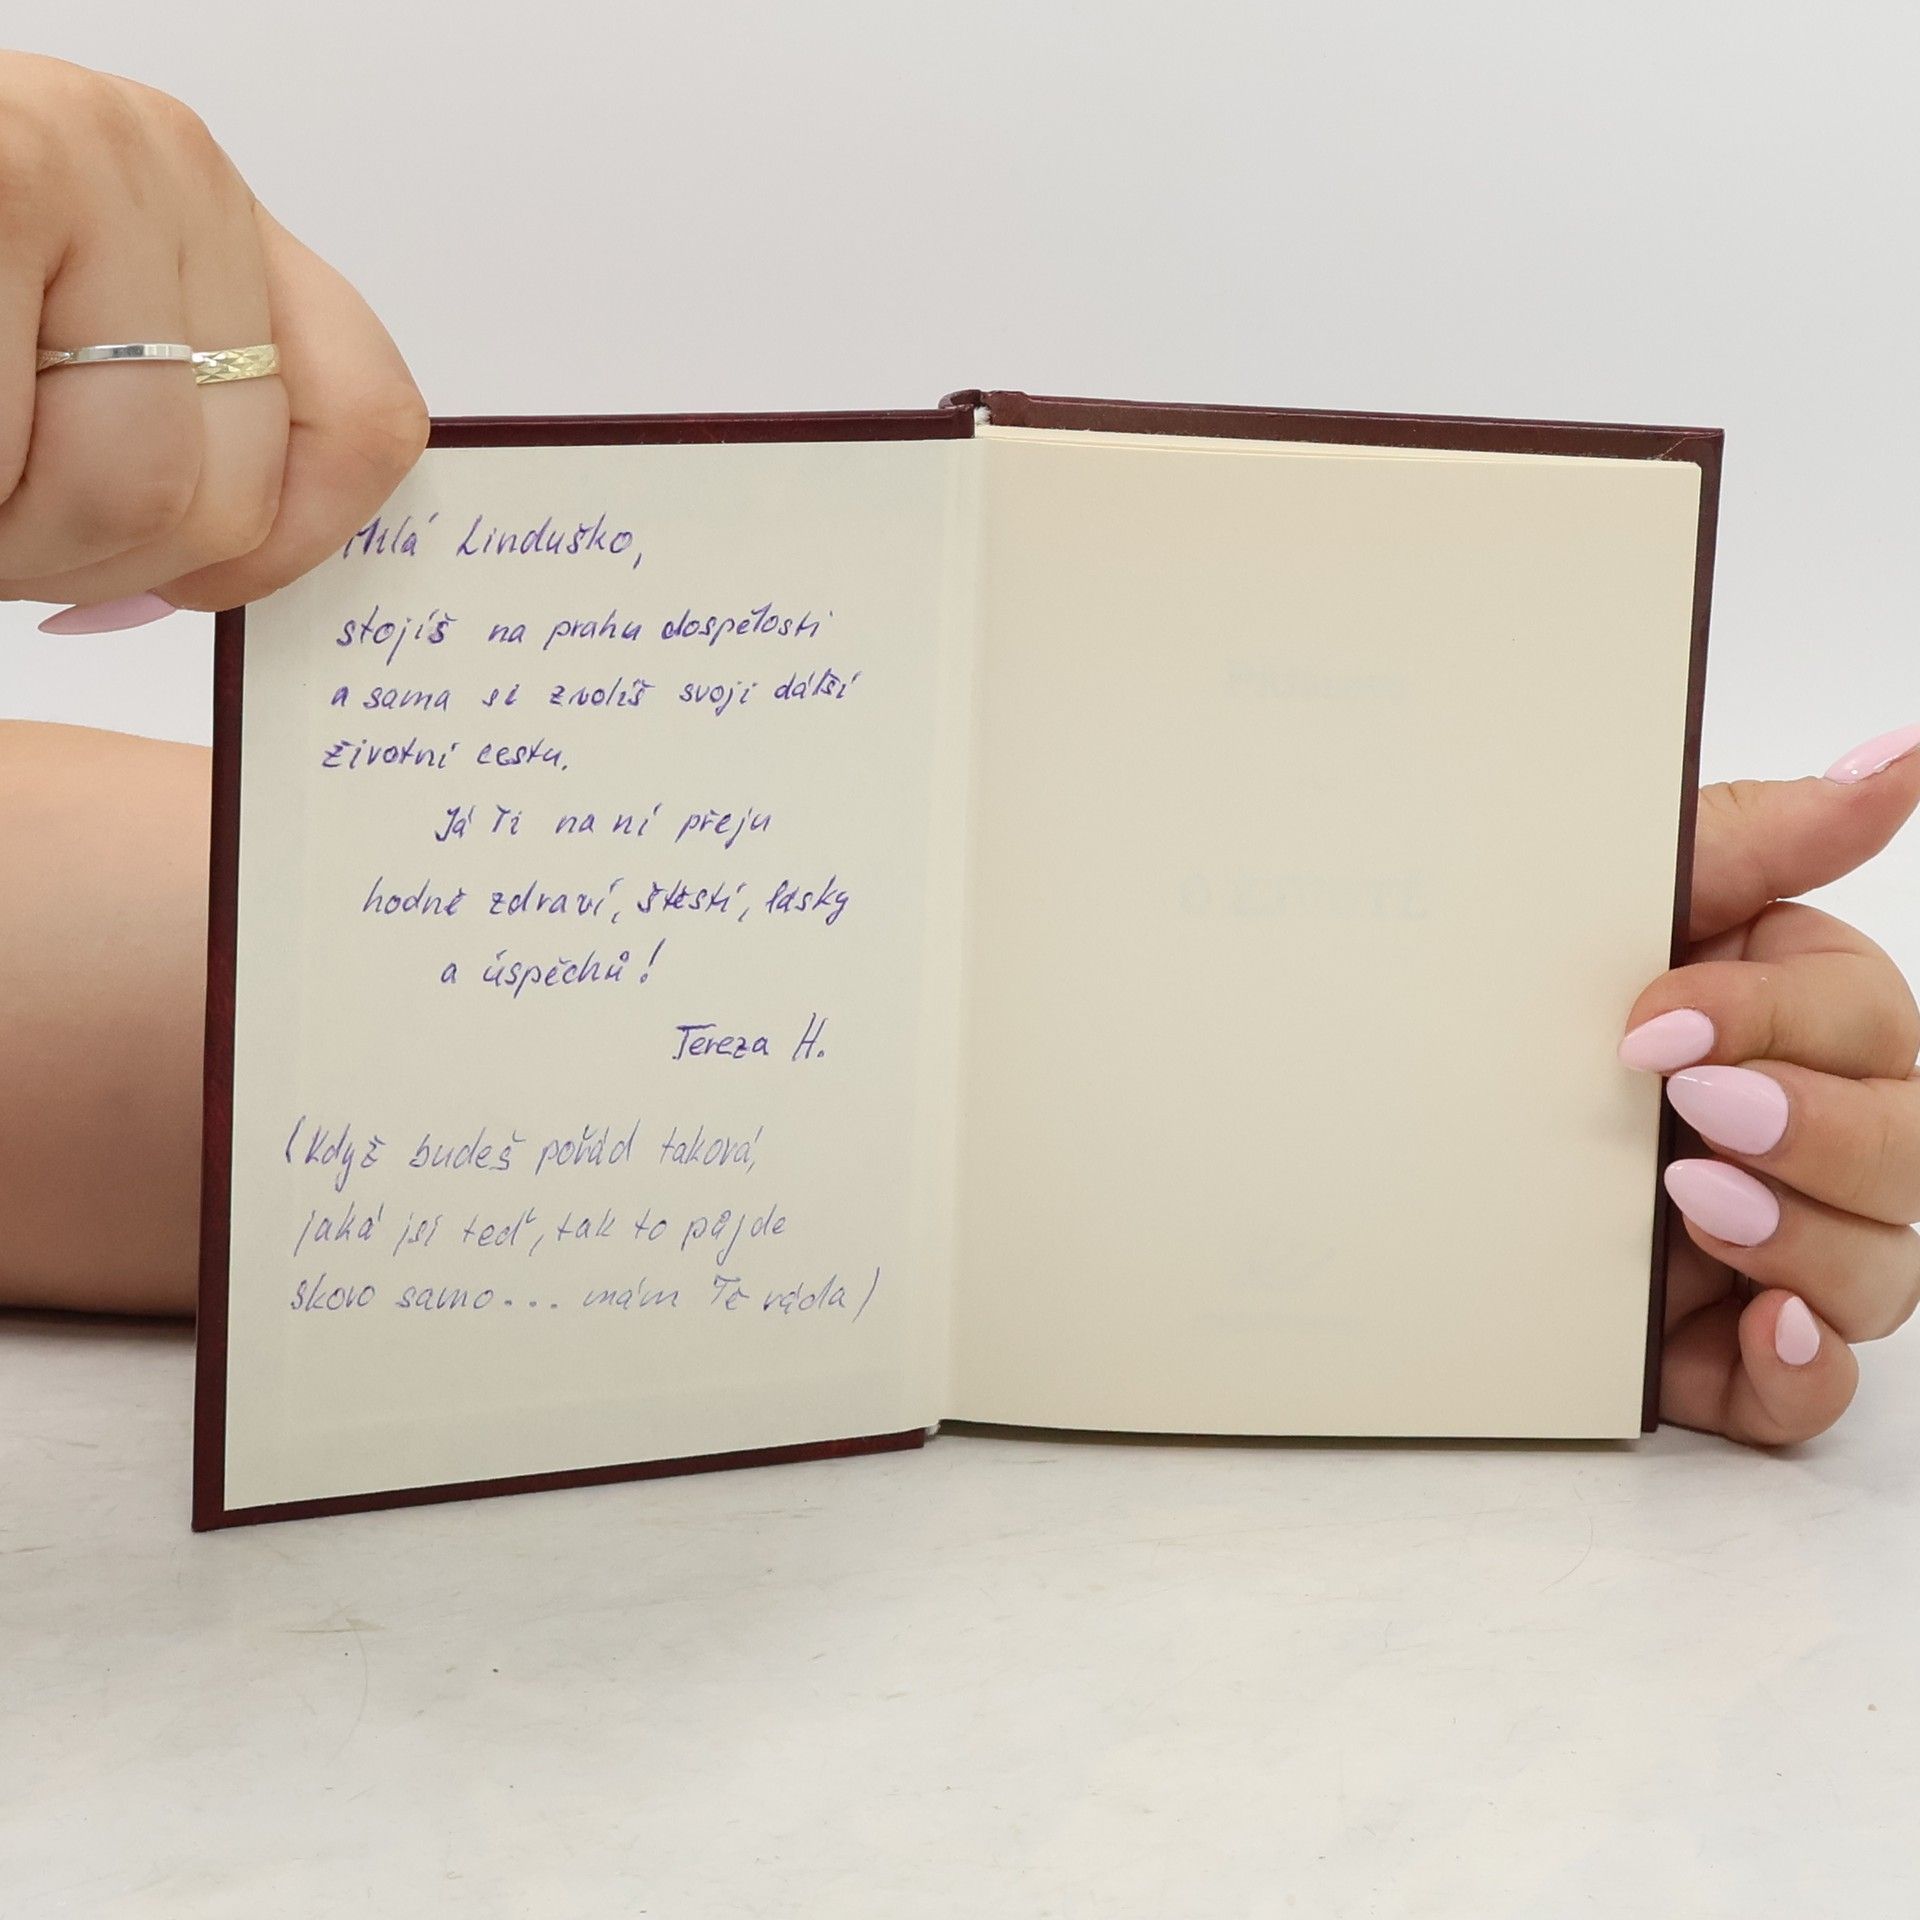 Milá Linduško,
stojíš na prahu dospělosti
a sama si zvolíš svoji další
životní cestu.
Já Ti na ní přeju
hodně zdraví, štěstí, lásky
a úspěchů!
Tereza H.
(Když budeš pořád taková,
jaká jsi teď, tak to půjde
skoro samo... mám Tě ráda)